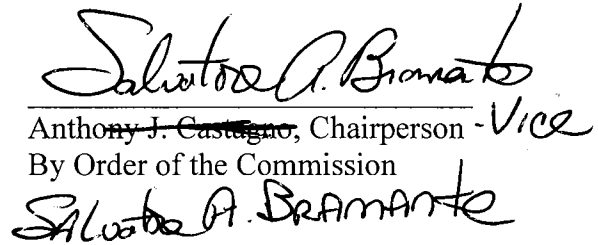 Salvatore A. Bramante
Anthony J. Castagno, Chairperson - Vice
By Order of the Commission
SALvatore A. BRAMANte